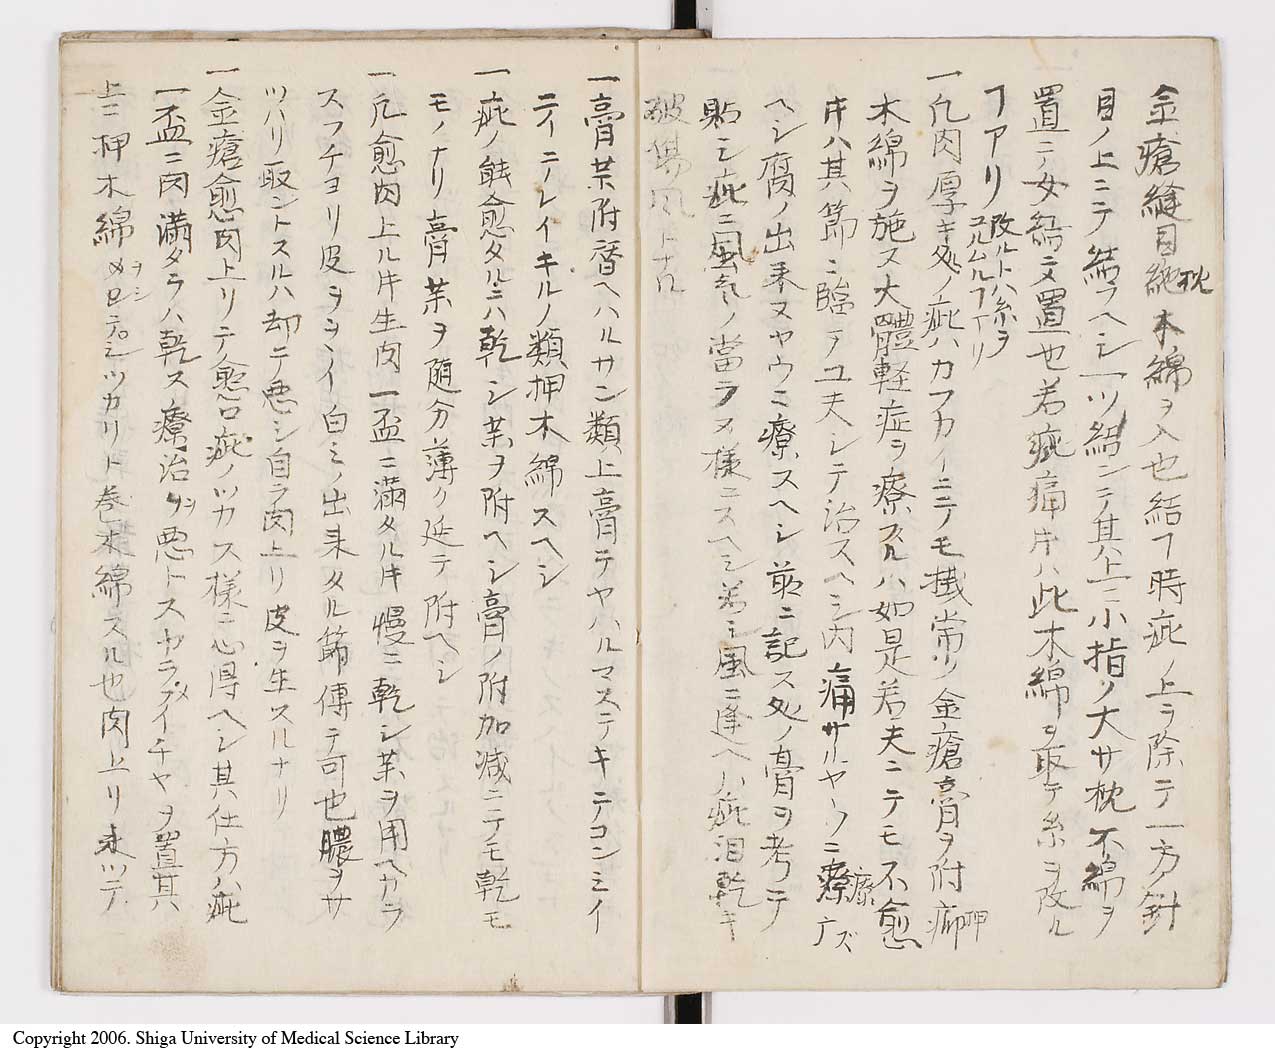 金瘡縫目絶枕木綿ヲ入也結フ時疵ノ上ヲ除テ一方針
目ノ上ニテ結フヘシ一ツ結ンテ其上ニ小指ノ大サ枕木綿ヲ
置ニテ女結ニ〆置也若疵痛キハ此木綿ヲ取テ糸ヲ改ル
フアリ
改ルトハ糸ヲ
ユルムルフナリ
一凡肉厚キ処ノ疵ハカフカイニテモ撒常ノ金瘡膏ヲ附押
木綿ヲ施ス大體軽症ヲ療スルハ如是若夫ニテモ不愈
キハ其節ニ臨ヲユ夫シテ治スヘシ内痛サルヤウニ療治
ヘシ腐ノ出来ヌヤウニ療スヘシ前ニ記ス処ノ膏ヲ考テ
貼ニシ疵ニ風気ノ當ラヌ様ニスヘシ若シ風ニ逢ヘハ疵泪乾キ
破傷風トナル
一膏薬附替ヘハルサン類上膏テヤハルマステキテコンミイ
ニイニノレイキルノ類押木綿スヘシ
一疵ノ能愈タルニハ乾シ薬ヲ附ヘシ膏ノ附加減ニテモ乾モ
モノナリ膏薬ヲ随分薄ク延テ附ヘシ
一凡愈肉上ルキ生肉一盃ニ満タルキ慢ニ乾シ薬ヲ用ヘカラ
スフチヨリ皮ヲヲシイ白ミノ出来タル節傳テ可也膿ヲサ
ツハリ取ントスルハ却テ悪シ自ラ肉上リ皮ヲ生スルナリ
一金瘡愈肉上リテ愈口疵ノツカス様ニ心得ヘシ其仕方ハ疵
一盃ニ肉満タラハ乾ス療治ヲ悪トスヤラメイチヤヲ置其
上ニ押木綿ヲシ〆ロテシツカリト巻木綿スル也肉上リ来ツテ